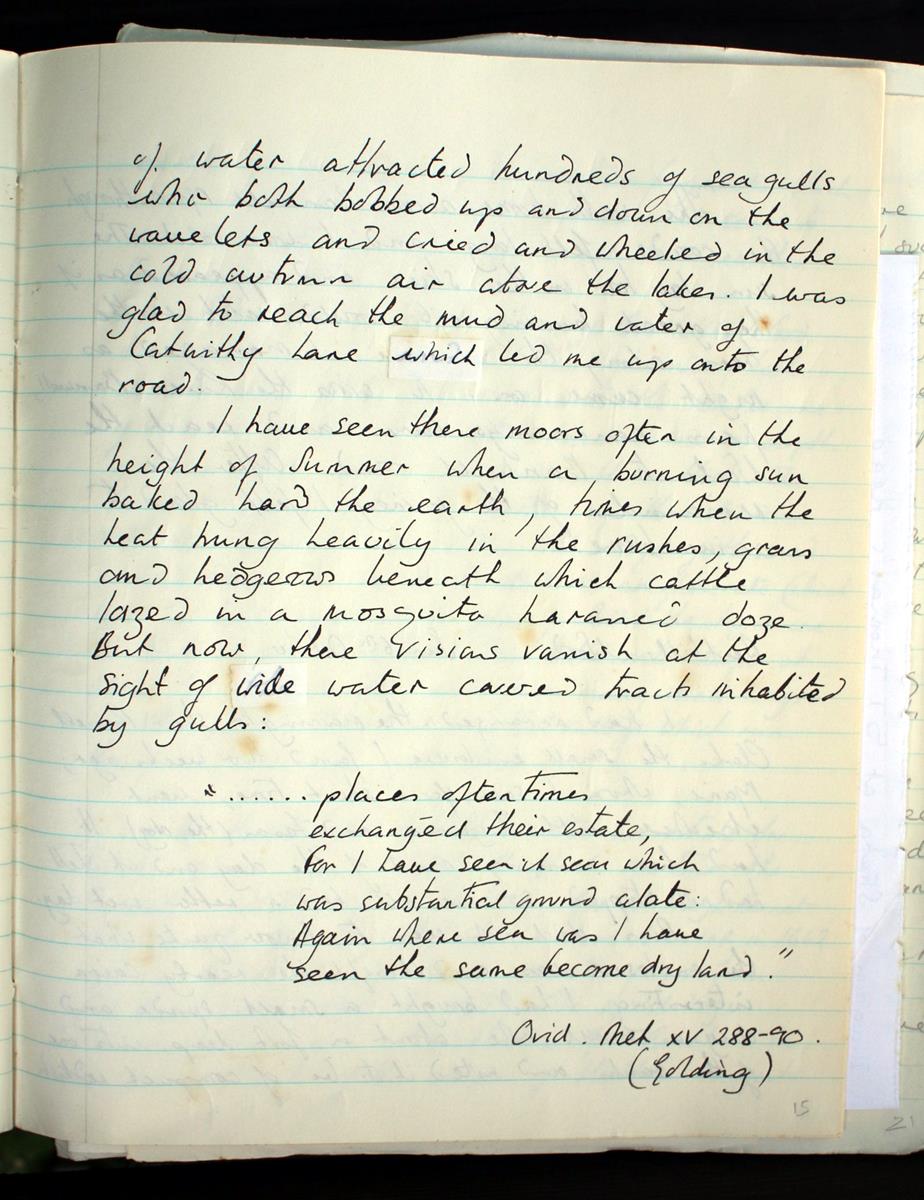 of water attracted hundreds of seagulls
who both bobbed up and down on the
wavelets and cried and wheeled in the
cold autumn air above the lakes. I was
glad to reach the mud and water of
Catwithy Lane which led me up onto the
road.
I have seen these moors often in the
height of Summer when a burning sun
baked hard the earth, times when the
heat hung heavily in the rushes, grass
and hedgerows beneath which cattle
lazed in a mosquito harassed doze.
But now, these visions vanish at the
sight of wide water covered tracts inhabited
by gulls:
"...... places oftentimes
exchanged their estate,
For I have seen it sea which
was substantial ground alate:
Again where sea was I have
seen the same become dry land."
Ovid. Met XV 288-90.
(Golding)
15
21